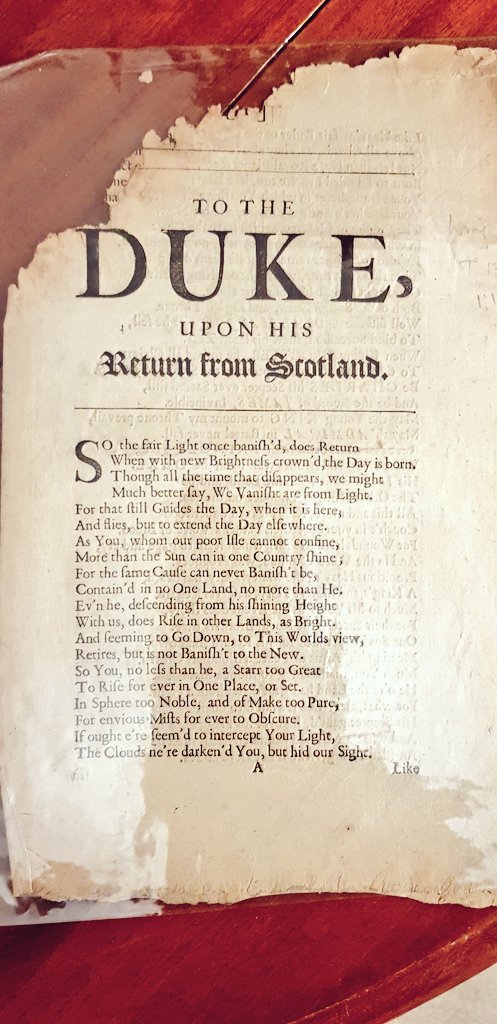 TO THE
DUKE,
UPON HIS
Return from Scotland.
SO the fair Light once baniſh'd, does Return
When with new Brightneſs crown'd,the Day is born.
Though all the time that diſappears, we might
Much better ſay, We Vaniſht are from Light.
For that ſtill Guides the Day, when it is here,
And flies, but to extend the Day elſewhere.
As You, whom our poor Iſle cannot confine,
More than the Sun can in one Country ſhine;
For the ſame Cauſe can never Baniſh't be,
Contain'd in no One Land, no more than He.
Ev'n he, deſcending from his ſhining Height
With us, does Riſe in other Lands, as Bright.
And ſeeming to Go Down, to This Worlds view,
Retires, but is not Baniſh't to the New.
So You, no leſs than he, a Starr too Great
To Riſe for ever in One Place, or Set.
In Sphere too Noble, and of Make too Pure,
For envious Miſts for ever to Obſcure.
If ought e're ſeem'd to intercept Your Light,
The Clouds ne're darken'd You, but hid our Sight.
A Like